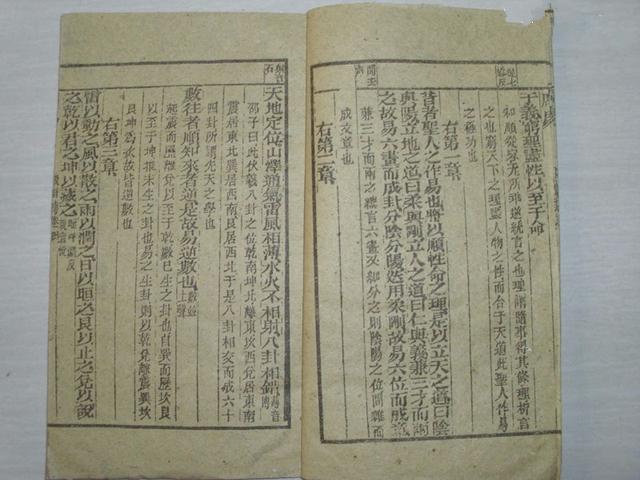 于義窮理盡性以至于命
和順從容无所乖逆統言之也理謂隨事得其條理析言
之也窮天下之理盡人物之性而合于天道此聖人作易
之極功也
右第一章
昔者聖人之作易也將以順性命之理是以立天之道曰陰
與陽立地之道曰柔與剛立人之道曰仁與義兼三才而兩
之故易六畫而成卦分陰分陽迭用柔剛故易六位而成章
兼三才而兩之總言六畫又細分之則陰陽之位間雜而
成文章也
右第二章
天地定位山澤通氣雷風相薄水火不相射八卦相錯薄音
邵子曰此伏羲八卦之位乾南坤北離東坎西兌居東南
震居東北巽居西南艮居西北于是八卦相交而成六十
四卦所謂先天之學也
數往者順知來者逆是故易逆數也數並上聲
起震而歷離兌以至于乾數已生之卦也自巽而歷坎艮
以至于坤推未生之卦也易之生卦則以乾兌離震巽坎
艮坤為次故皆逆數也
右第三章
雷以動之風以散之雨以潤之日以晅之艮以止之兌以說
之乾以君之坤以藏之